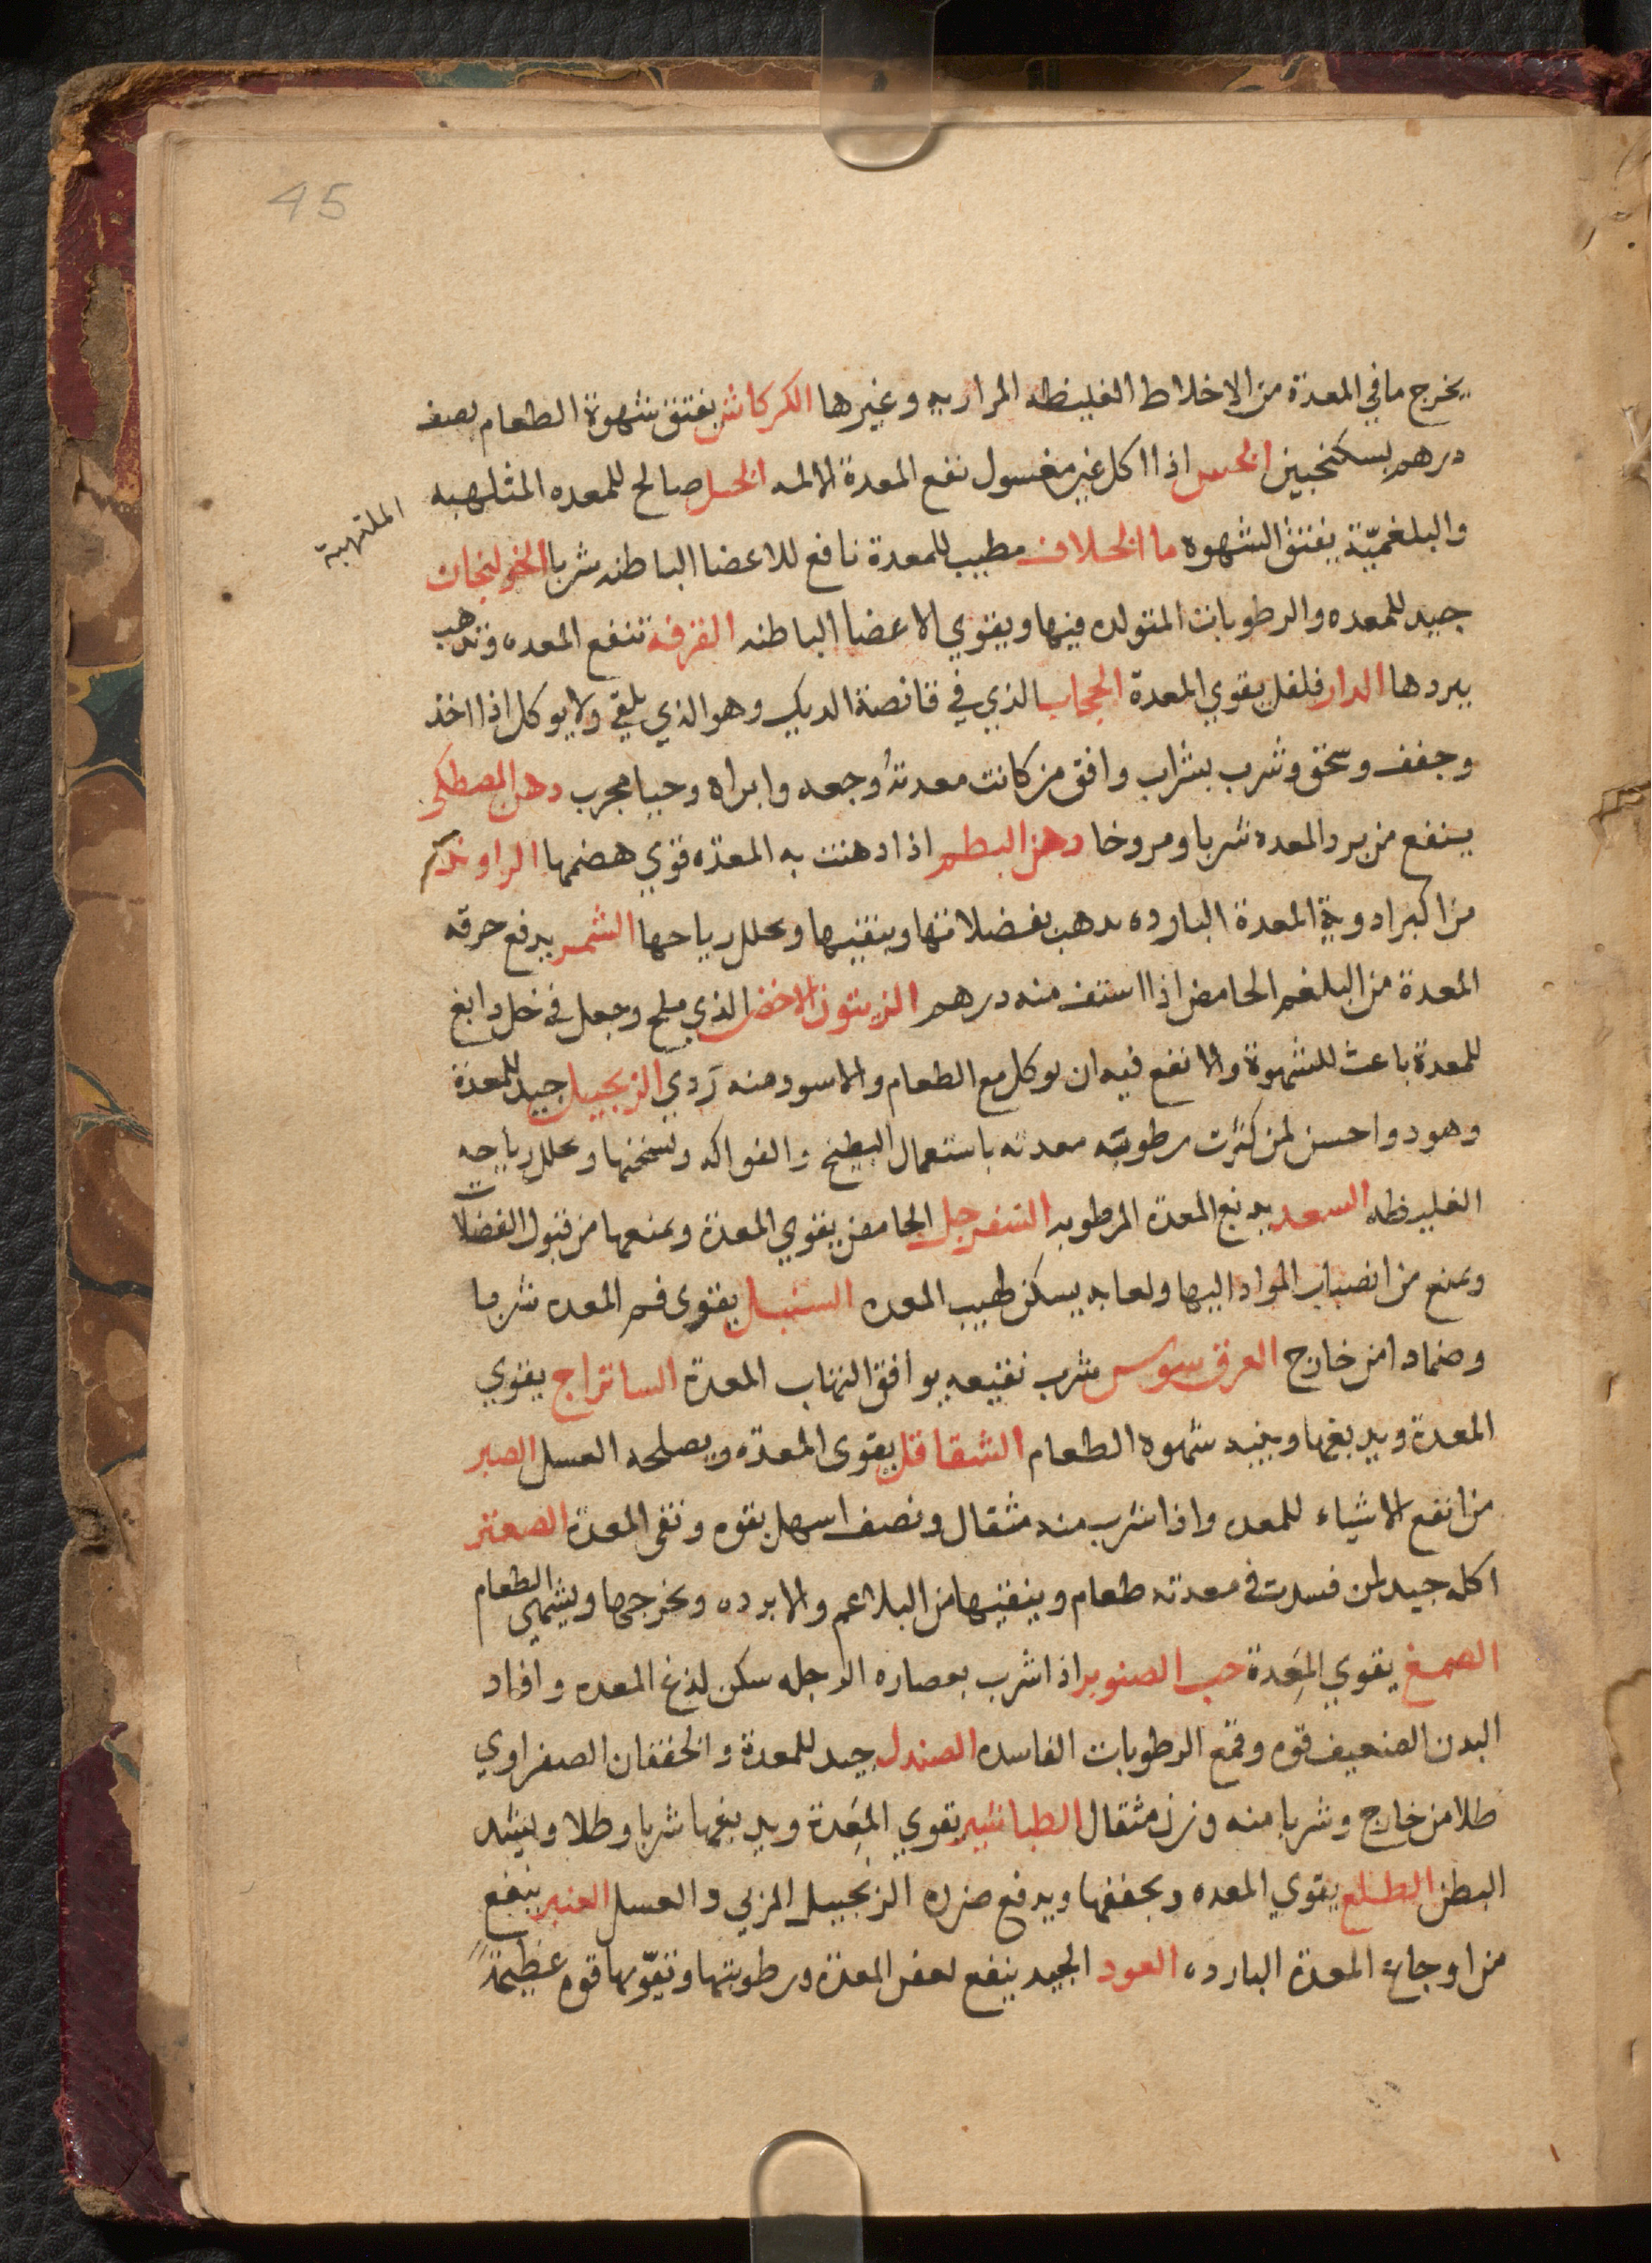 45
يخرج ما في المعدة من الاخلاط الغليظه المراريه وغيرها الكركاش يفتق شهوة الطعام نصف
درهم بسكنجبين الخس اذا اكل غير مغسول نفع المعدة الالمه الخل صالح للمعده المثلهبه
الملتهبة
والبلغميّة يفتق الشهوه ما الخلاف مطيب للمعدة نافع للاعضا الباطنه شربا الخولنجان
جيد للمعده والرطوبات المتولده فيها ويقوي الاعضا الباطنه القرفه تنفع المعده وتذهب
ببردها الدارفلفل يقوي المعدة الحجاب الذي في قانصة الديك وهو الذي يلقى ولا يوكل اذا اخذ
وجفف وسحق وشرب بشراب وافق من كانت معدتهُ وجعه وابراه وحيا مجرب دهن المصطكى
ينفع من برد المعده شربا ومروخا دهن البطم اذا دهنت به المعده قوي هضمها الراوند
من اكبر ادوية المعدة البارده يدهب بفضلاتها وينقيها ويحلل رياحها الشمر يدفع حرقه
المعدة من البلغم الحامض اذا استف منه درهم الزيتون الاخضر الذي ملح وجعل في خل دابغ
للمعدة باعث للشهوة والانفع فيه ان يوكل مع الطعام والاسود منه ردي الزنجبيل جيد للمعدة
وهو دوا حسن لمن كثرت رطوبته معدته باستعمال البطيخ والفواكه ويسخنها ويحلل رياحه
الغليظه السعد يدبغ المعدة المرطوبه السفرجل الحامض يقوي المعدة ويمنعها من قبول الفضلات
ويمنع من انصباب المواد اليها ولعابه يسكن لهيب المعده السنبل يقوى فم المعده شربا
وضمادا من خارج العرق سوس شرب نقيعه يوافق التهاب المعدة الساتراج يقوي
المعدة ويدبغها وينبه شهوه الطعام الشقاقل يقوى المعده ويصلحه العسل الصبر
من انفع الاشياء للمعده واذا شرب منه مثقال ونصف اسهل بقوه ونقى المعدة الصعتر
اكله جيد لمن فسدت في معدته طعام وينقيها من البلاغم والابرده ويخرجها ويشهي الطعام
الصمغ يقوي المَعِدة حب الصنوبر اذا شرب بعصاره الرجله سكن لذغ المعده وافاد
البدن الضعيف قوه وقمع الرطوبات الفاسده الصندل جيد للمعدة والخفقان الصفراوي
طلا من خارج وشربا منه وزن مثقال الطباشير يقوي المَعِدة ويدبغها شربا وطلا ويشد
البطن الطلع يقوي المعده ويجففها ويدفع ضرره الزنجبيل المربي والعسل العنبر ينفع
من اوجاع المعدة البارده العود الجيد ينفع لعفن المعدة ورطوبتها وتقوّيها قوه عظيمةً